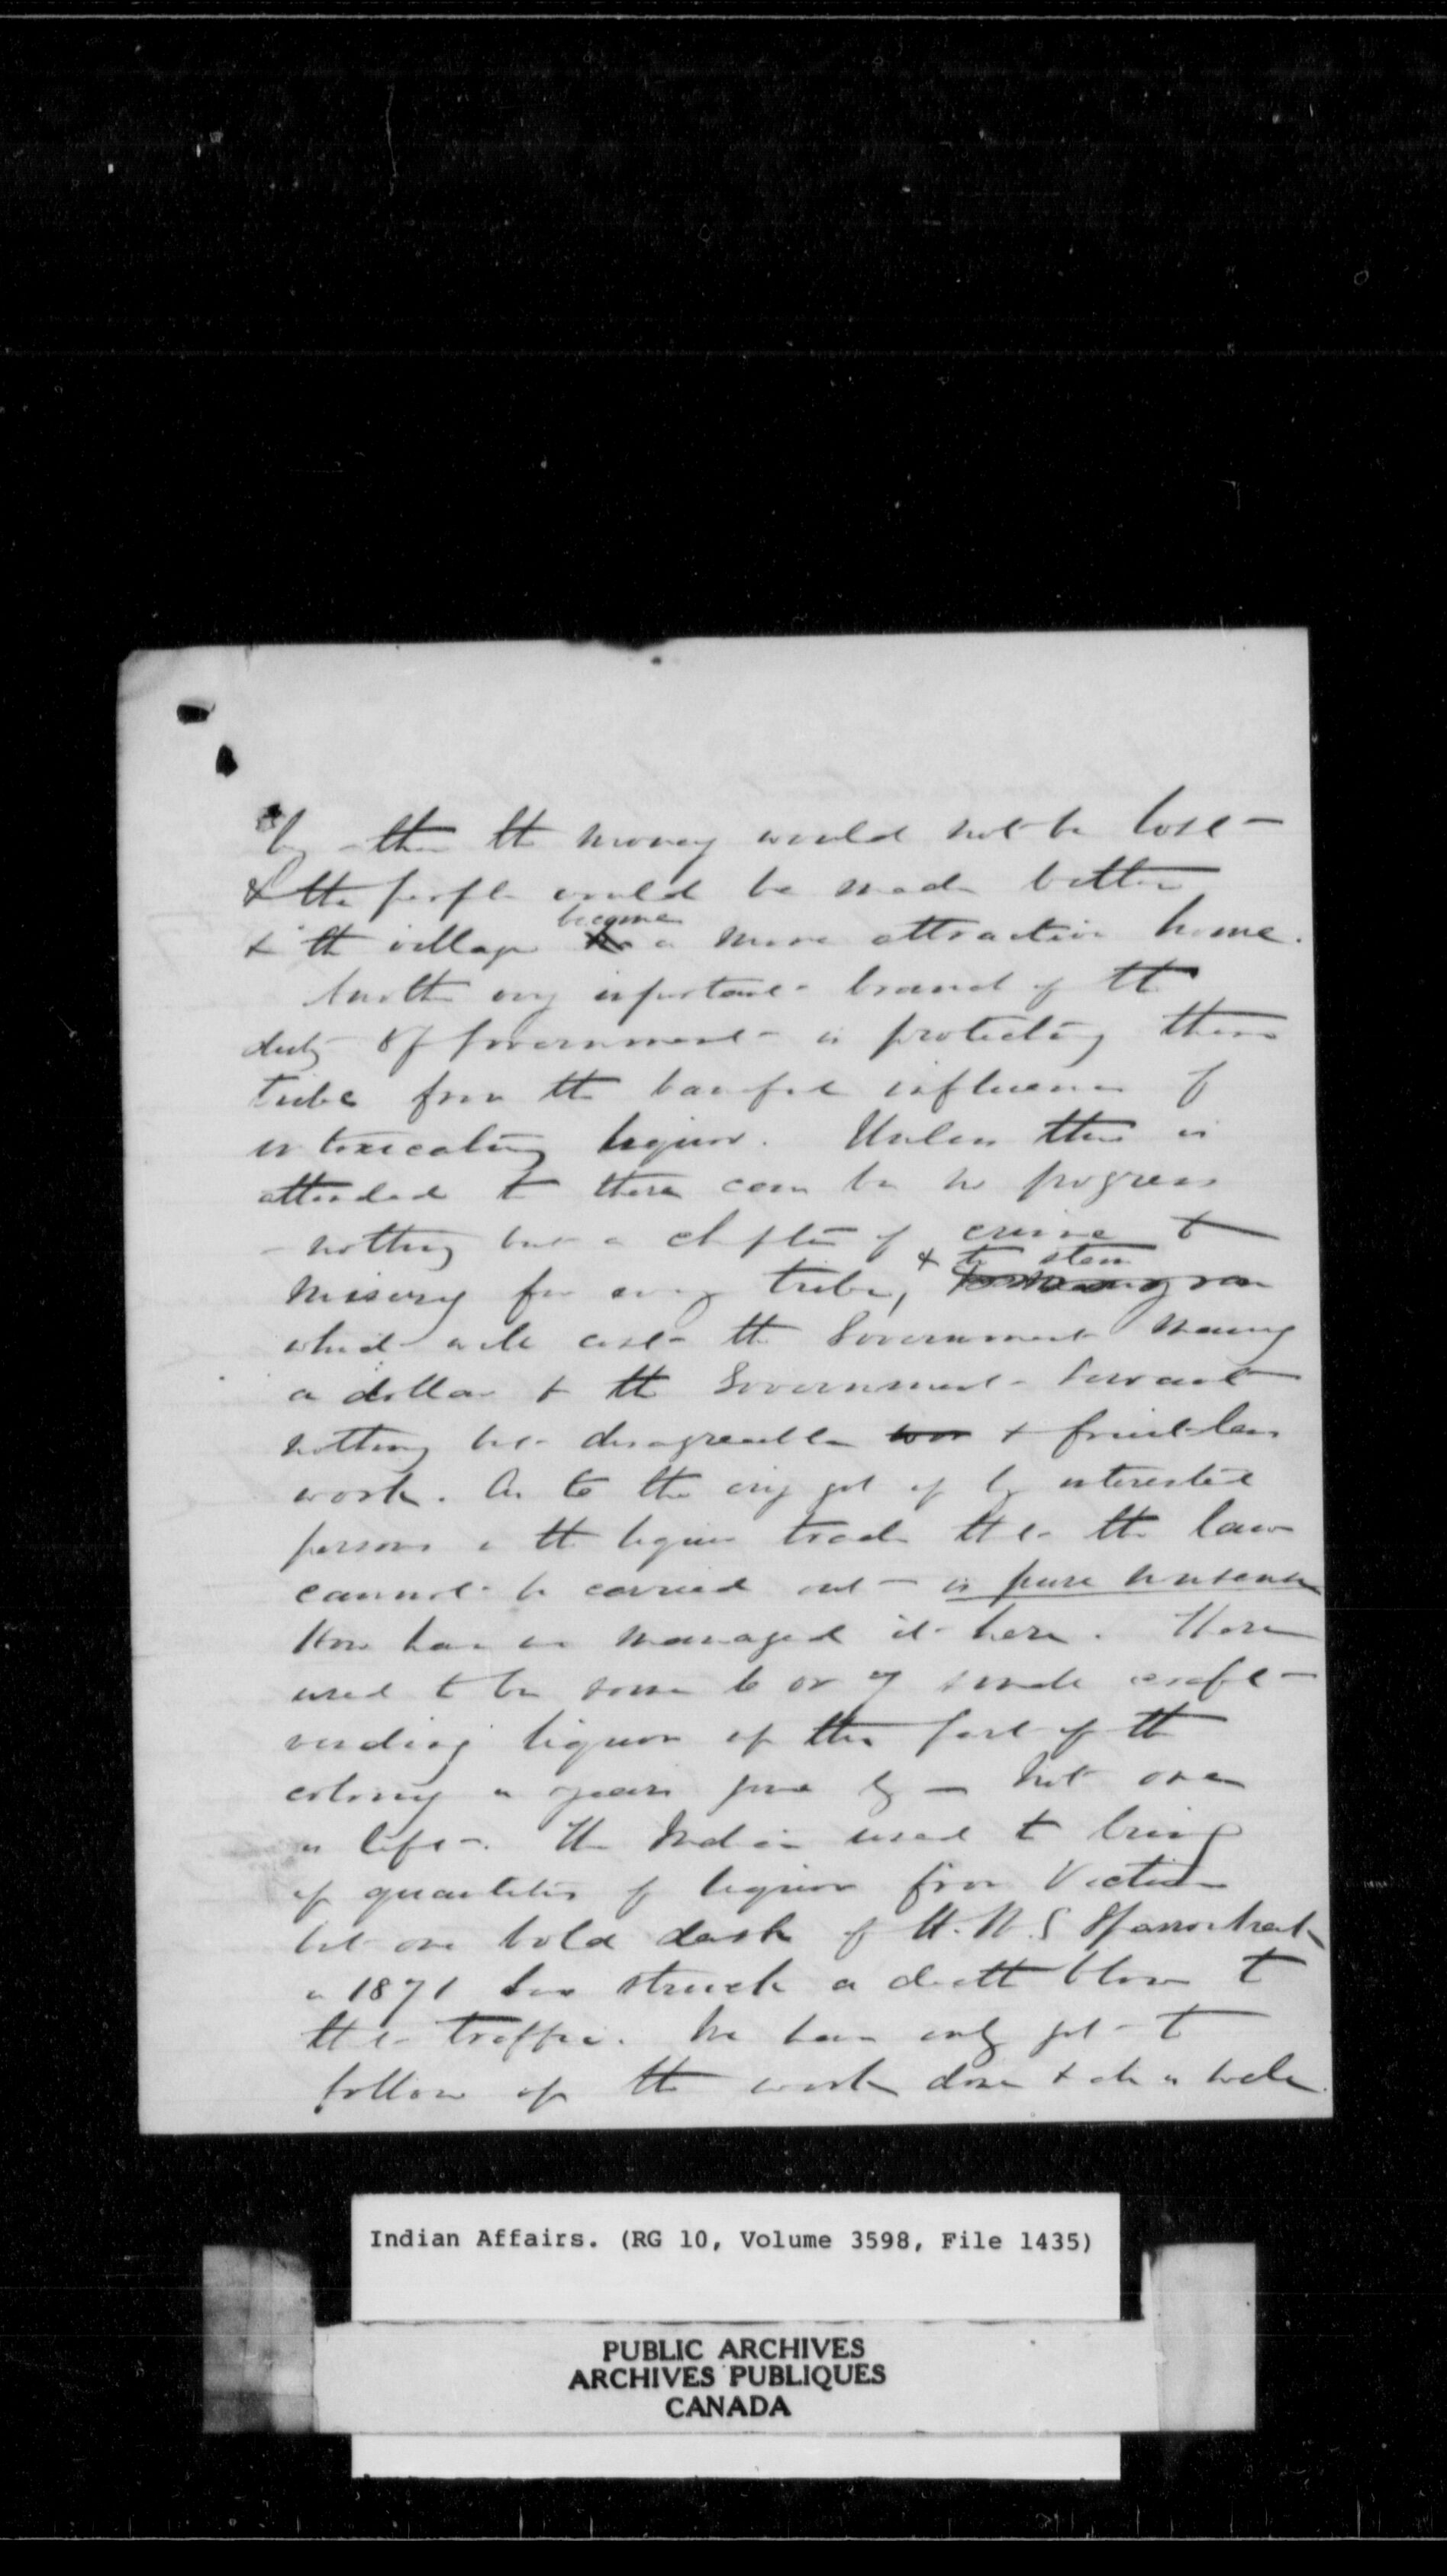 by - then the money would not be lost -
& the people would be made better
become
& the village a more attractive home.
Another very important branch of the
duty of Government is protecting these
tribes from the baneful influence of
intoxicating liquor. Unless this is
attended to there can be no progress
- nothing but a chapter of crime &
misery for every tribe,
which will cost the Government many
a dollar & the Government Servant
nothing but disagreeable & fruitless
work. As to the cry got up by interested
persons in the liquor trade that the law
cannot be carried out - is pure nonsense
How have we managed it here. There
used to be some 6 or 7 small craft -
vending liquor up this part of the
colony in years gone by - not one
is left. The Indians used to bring
up quantities of liquor from Victoria
but one bold dash of H.M.S Sparrowhawk
in 1871 has struck a death blow to
the traffic. We have only got to
follow up the work done & all is well.
Indian Affairs. (RG 10, Volume 3598, File 1435)
PUBLIC ARCHIVES
ARCHIVES PUBLIQUES
CANADA